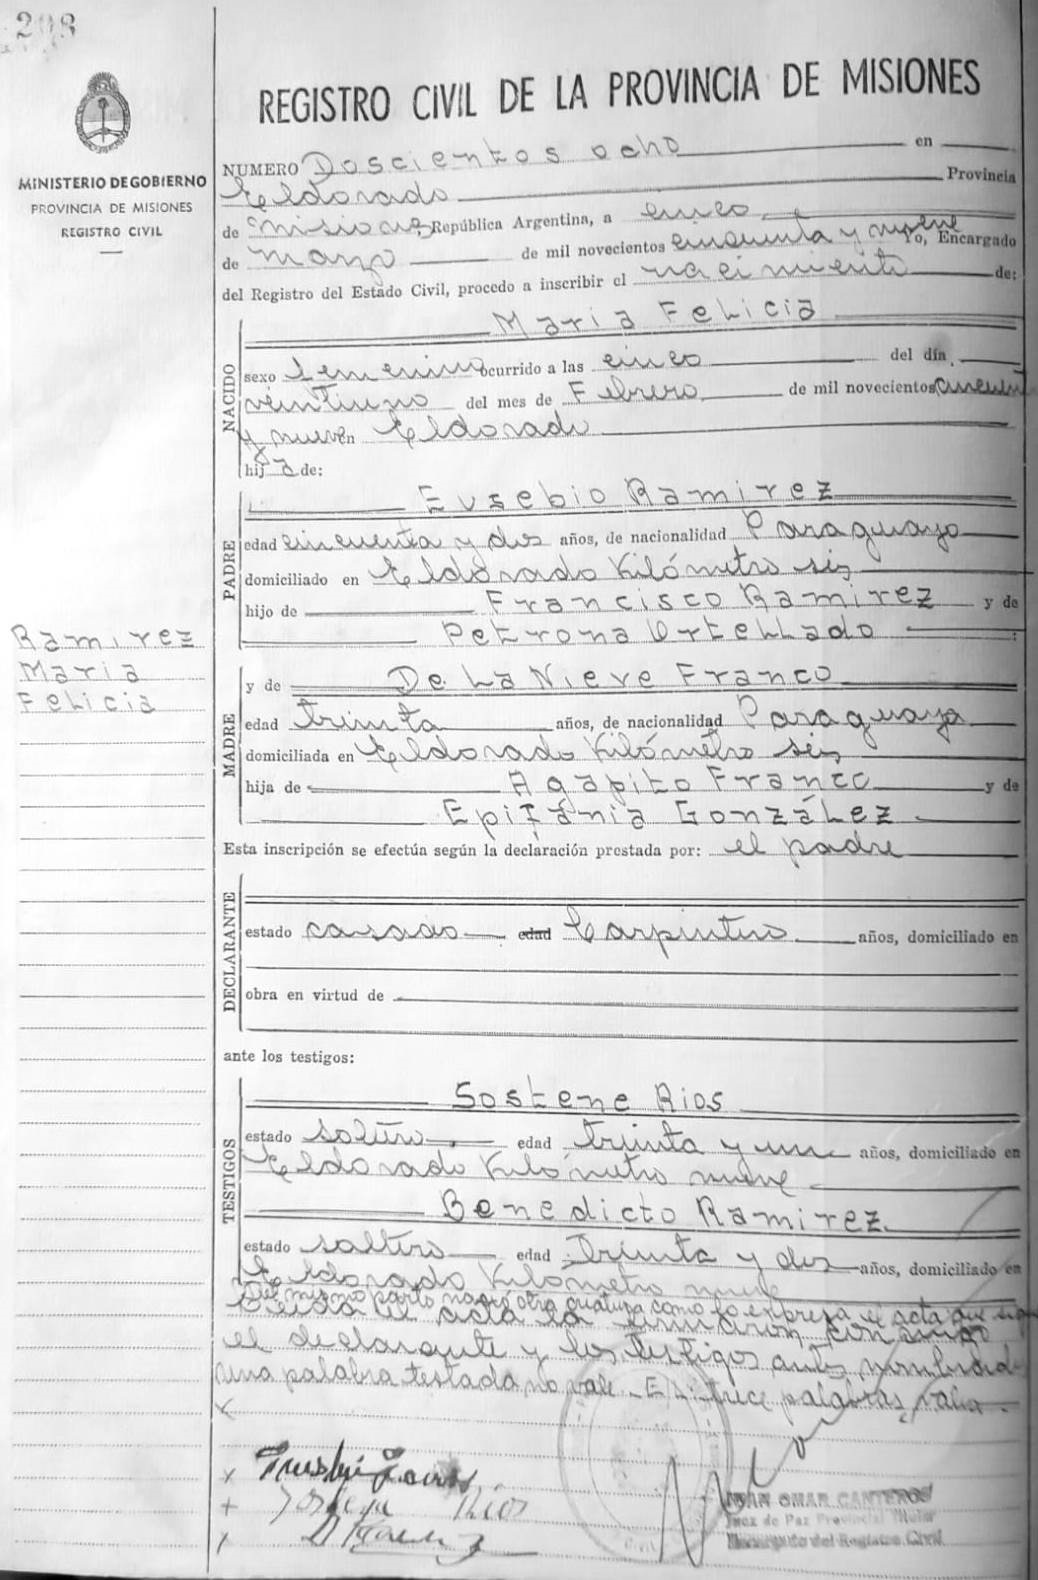 208
REGISTRO CIVIL DE LA PROVINCIA DE MISIONES
MINISTERIO DE GOBIERNO
PROVINCIA DE MISIONES
REGISTRO CIVIL
NUMERO Doscientos ocho en
Eldorado Provincia
de Misiones, República Argentina, a cinco
de Marzo de mil novecientos cincuenta y nueve Yo, Encargado
del Registro del Estado Civil, procedo a inscribir el nacimiento de:
NACIDO
Maria Felicia
sexo femenino ocurrido a las cinco del día
veintiuno del mes de Febrero de mil novecientos cincuenta
y nueve en Eldorado
hija de:
PADRE
Eusebio Ramirez
edad cincuenta y dos años, de nacionalidad Paraguayo
domiciliado en Eldorado Kilómetro seis
hijo de Francisco Ramirez y de
Petrona Ortellado
Ramirez
Maria
Felicia
MADRE
y de De La Nieve Franco
edad treinta años, de nacionalidad Paraguaya
domiciliada en Eldorado Kilómetro seis
hija de Agapito Franco y de
Epifánia González
Esta inscripción se efectúa según la declaración prestada por: el padre
DECLARANTE
estado casado edad Carpintero años, domiciliado en
obra en virtud de
ante los testigos:
TESTIGOS
Sostene Rios
estado soltero edad treinta y un años, domiciliado en
Eldorado Kilómetro nueve
Benedicto Ramirez
estado soltero edad treinta y dos años, domiciliado en
Eldorado Kilometro nueve
Del mismo parto nació otra criatura como lo expresa el acta que sigue
Leida el acta la firmaron conmigo
el declarante y los testigos antes nombrados
una palabra testada no vale - E L: trece palabras, vale.
x
x
+ Rios
x
IVAN OMAR CANTEROS
Juez de Paz Provincial Titular
Encargado del Registro Civil